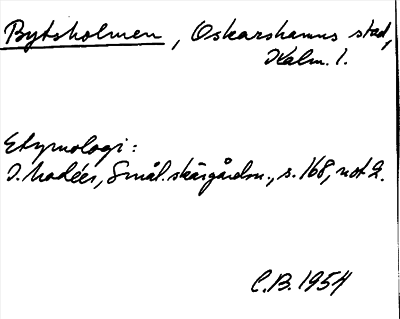 Bytsholmen, Oskarshamns stad,
Kalm. l.
Etymologi:
I. Modéer, Smål. skärgårdsn., s. 168, not 2.
C.B. 1954